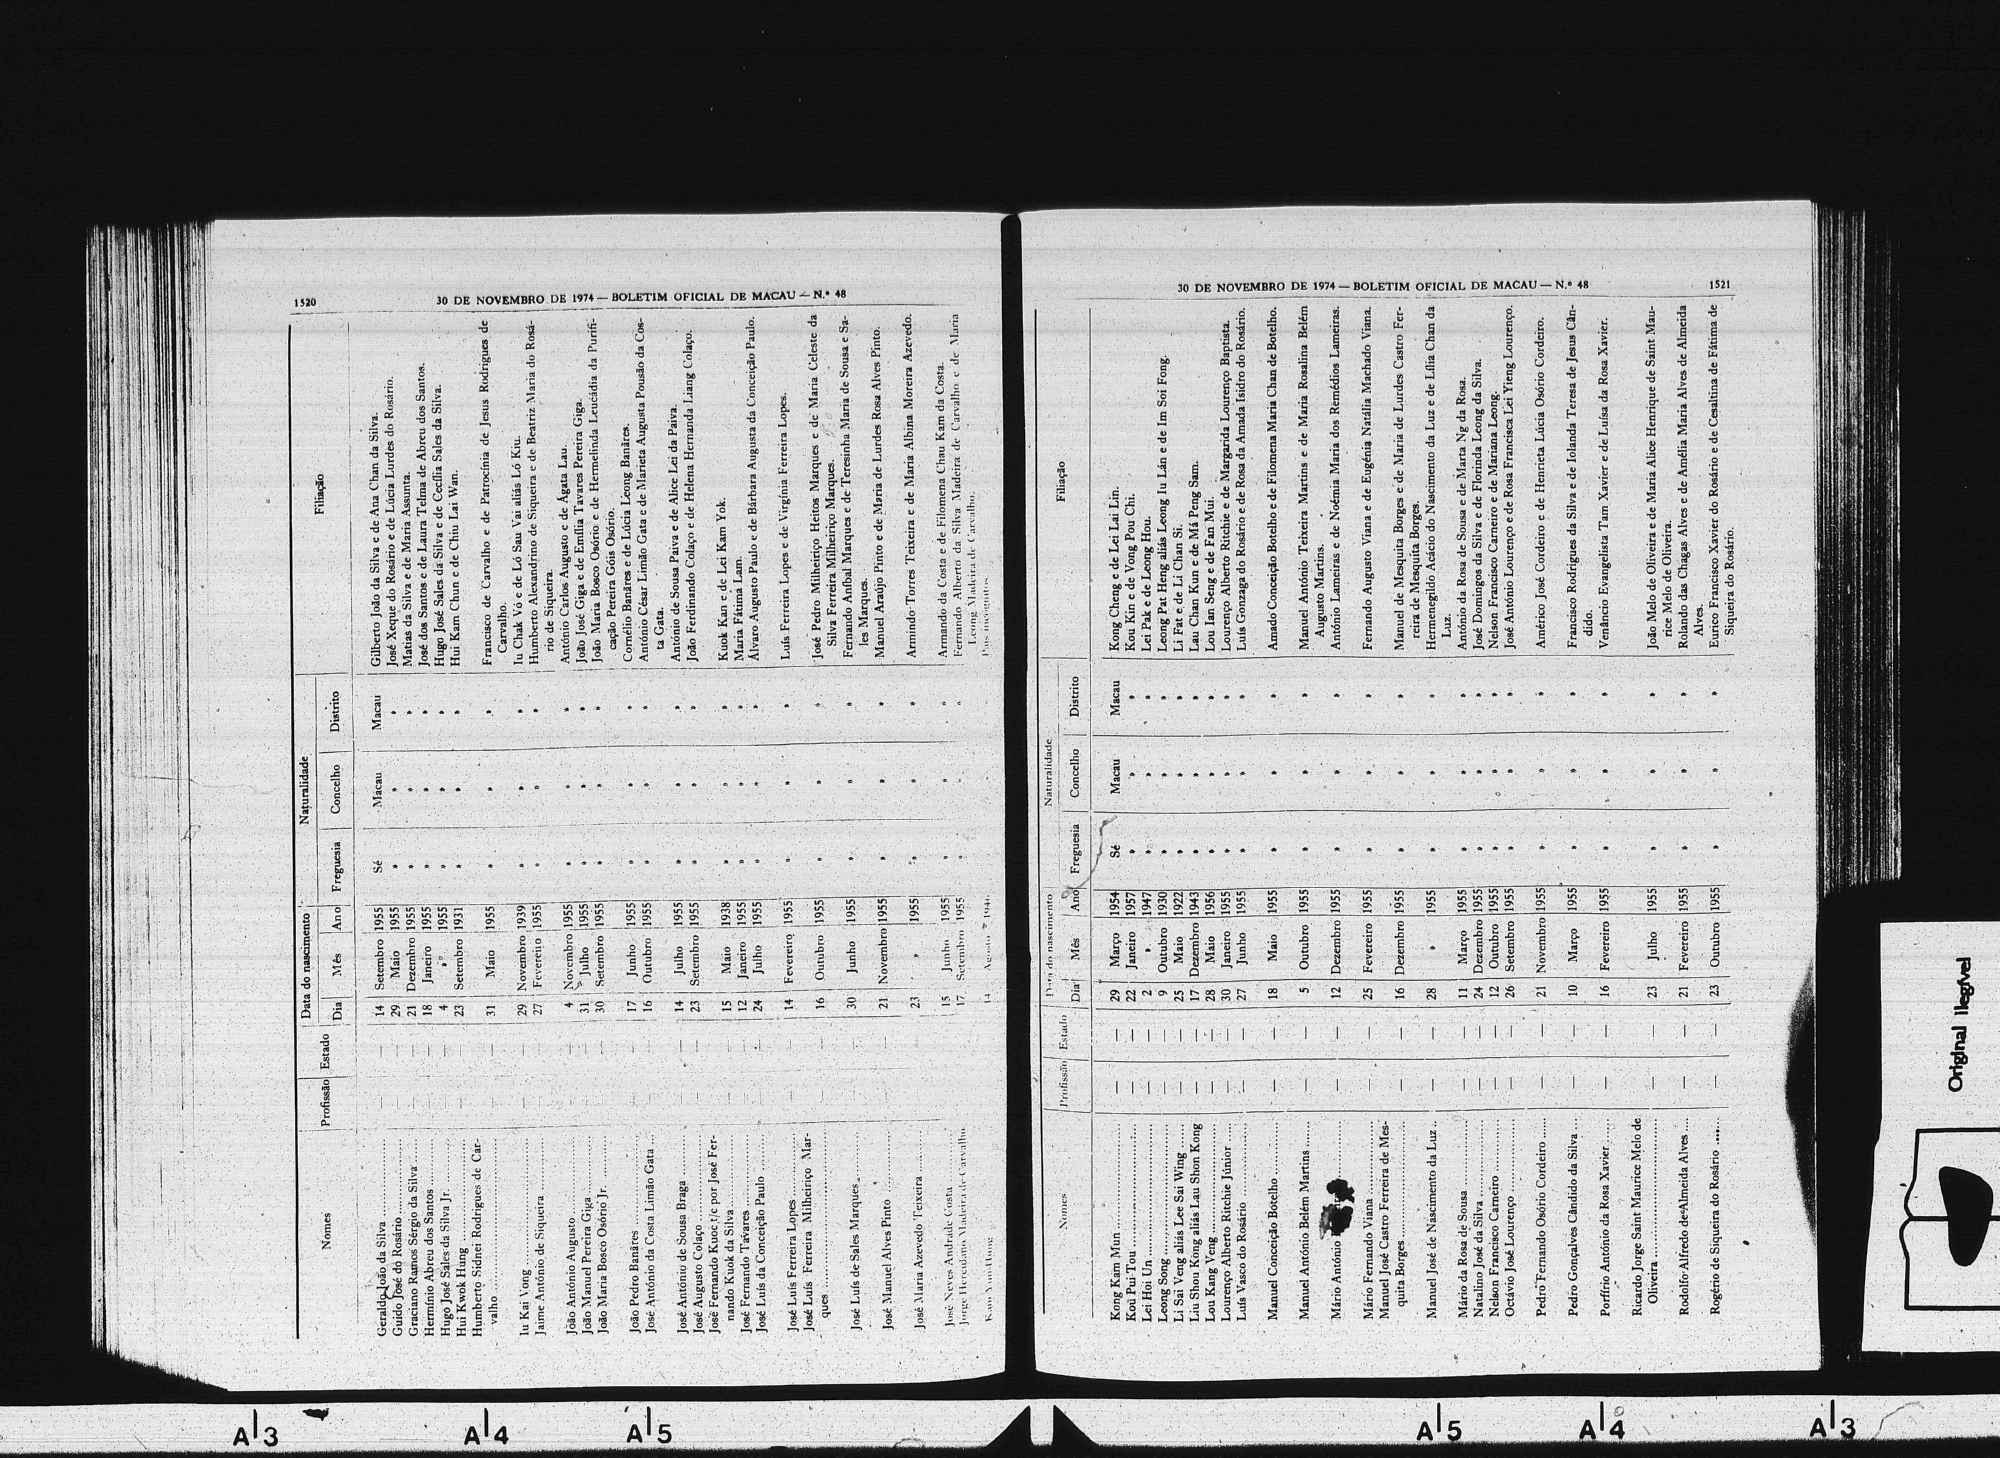 1520
30 DE NOVEMBRO DE 1974 — BOLETIM OFICIAL DE MACAU — N.º 48
Nomes Profissão Estado Data do nascimento Naturalidade Filiação
Dia Mês Ano Freguesia Concelho Distrito
Geraldo João da Silva — — 14 Setembro 1955 Sé Macau Macau Gilberto João da Silva e de Ana Chan da Silva.
Guido José do Rosário — — 29 Maio 1955 » » » José Xeque do Rosário e de Lúcia Lurdes do Rosário.
Graciano Ramos Sérgio da Silva — — 21 Dezembro 1955 » » » Matias da Silva e de Maria Assunta.
Hermínio Abreu dos Santos — — 18 Janeiro 1955 » » » José dos Santos e de Laura Telma de Abreu dos Santos.
Hugo José Sales da Silva Jr. — — 4 » 1955 » » » Hugo José Sales da Silva e de Cecília Sales da Silva.
Hui Kwok Hung — — 23 Setembro 1931 » » » Hui Kam Chun e de Chiu Lai Wan.
Humberto Sidnei Rodrigues de Car-
valho — — 31 Maio 1955 » » » Francisco de Carvalho e de Patrocínia de Jesus Rodrigues de
Carvalho.
Iu Kai Vong — — 29 Novembro 1939 » » » Iu Chak Vó e de Ló Sau Vai aliás Ló Kiu.
Jaime António de Siqueira — — 27 Fevereiro 1955 » » » Humberto Alexandrino de Siqueira e de Beatriz Maria do Rosá-
rio de Siqueira.
João António Augusto — — 4 Novembro 1955 » » » António Carlos Augusto e de Ágata Lau.
João Manuel Pereira Giga — — 31 Julho 1955 » » » João José Giga e de Emília Tavares Pereira Giga.
João Maria Bosco Osório Jr. — — 30 Setembro 1955 » » » João Maria Bosco Osório e de Hermelinda Leucádia da Purifi-
cação Pereira Góis Osório.
João Pedro Banãres — — 17 Junho 1955 » » » Cornélio Banãres e de Lúcia Leong Banãres.
José António da Costa Limão Gata — — 16 Outubro 1955 » » » António César Limão Gata e de Marieta Augusta Pousão da Cos-
ta Gata.
José António de Sousa Braga — — 14 Julho 1955 » » » António de Sousa Paiva e de Alice Lei da Paiva.
José Augusto Colaço — — 23 Setembro 1955 » » » João Ferdinando Colaço e de Helena Hernanda Liang Colaço.
José Fernando Kuoc t/c por José Fer-
nando Kuok da Silva — — 15 Maio 1938 » » » Kuok Kan e de Lei Kam Yok.
José Fernando Tavares — — 12 Janeiro 1955 » » » Maria Fátima Lam.
José Luís da Conceição Paulo — — 24 Julho 1955 » » » Álvaro Augusto Paulo e de Bárbara Augusta da Conceição Paulo.
José Luís Ferreira Lopes — — 14 Fevereiro 1955 » » » Luís Ferreira Lopes e de Virgínia Ferreira Lopes.
José Luís Ferreira Milheiriço Mar-
ques — — 16 Outubro 1955 » » » José Pedro Milheiriço Heitos Marques e de Maria Celeste da
Silva Ferreira Milheiriço Marques.
José Luís de Sales Marques — — 30 Junho 1955 » » » Fernando Aníbal Marques e de Teresinha Maria de Sousa e Sa-
les Marques.
José Manuel Alves Pinto — — 21 Novembro 1955 » » » Manuel Araújo Pinto e de Maria de Lurdes Rosa Alves Pinto.
José Maria Azevedo Teixeira — — 23 » 1955 » » » Armindo Torres Teixeira e de Maria Albina Moreira Azevedo.
José Neves Andrade Costa — — 15 Junho 1955 » » » Armando da Costa e de Filomena Chau Kam da Costa.
Jorge Herculano Madeira de Carvalho — — 17 Setembro 1955 » » » Fernando Alberto da Silva Madeira de Carvalho e de Maria
Leong Madeira de Carvalho.
14 Agosto Pais incógnitos
30 DE NOVEMBRO DE 1974 — BOLETIM OFICIAL DE MACAU — N.º 48
1521
Nomes Profissão Estado Data do nascimento Naturalidade Filiação
Dia Mês Ano Freguesia Concelho Distrito
Kong Kam Mun — — 29 Março 1954 Sé Macau Macau Kong Cheng e de Lei Lai Lin.
Kou Pui Tou — — 22 Janeiro 1957 » » » Kou Kin e de Vong Pou Chi.
Lei Hoi Un — — 2 » 1947 » » » Lei Pak e de Leong Hou.
Leong Song — — 9 Outubro 1930 » » » Leong Pat Heng aliás Leong Iu Lán e de Im Soi Fong.
Li Sai Veng aliás Lee Sai Wing — — 25 Maio 1922 » » » Li Fat e de Li Chan Si.
Liu Shou Kong aliás Lau Shon Kong — — 17 Dezembro 1943 » » » Lau Chan Kun e de Má Peng Sam.
Lou Kang Veng — — 28 Maio 1956 » » » Lou Ian Seng e de Fan Mui.
Lourenço Alberto Ritchie Júnior — — 30 Janeiro 1955 » » » Lourenço Alberto Ritchie e de Margarida Lourenço Baptista.
Luís Vasco do Rosário — — 27 Junho 1955 » » » Luís Gonzaga do Rosário e de Rosa da Amada Isidro do Rosário.
Manuel Conceição Botelho — — 18 Maio 1955 » » » Amado Conceição Botelho e de Filomena Maria Chan de Botelho.
Manuel António Belém Martins — — 5 Outubro 1955 » » » Manuel António Teixeira Martins e de Maria Rosalina Belém
Augusto Martins.
Mário António — — 12 Dezembro 1955 » » » António Lameiras e de Noémia Maria dos Remédios Lameiras.
Mário Fernando Viana — — 25 Fevereiro 1955 » » » Fernando Augusto Viana e de Eugénia Natália Machado Viana.
Manuel José Castro Ferreira de Mes-
quita Borges — — 16 Dezembro 1955 » » » Manuel de Mesquita Borges e de Maria de Lurdes Castro Fer-
reira de Mesquita Borges.
Manuel José de Nascimento da Luz — — 28 » 1955 » » » Hermenegildo Acácio do Nascimento da Luz e de Lília Chan da
Luz.
Mário da Rosa de Sousa — — 11 Março 1955 » » » António da Rosa de Sousa e de Marta Ng da Rosa.
Natalino José da Silva — — 24 Dezembro 1955 » » » José Domingos da Silva e de Florinda Leong da Silva.
Nelson Francisco Carneiro — — 12 Outubro 1955 » » » Nelson Francisco Carneiro e de Mariana Leong.
Octávio José Lourenço — — 26 Setembro 1955 » » » José António Lourenço e de Rosa Francisca Lei Yieng Lourenço.
Pedro Fernando Osório Cordeiro — — 21 Novembro 1955 » » » Américo José Cordeiro e de Henrieta Lúcia Osório Cordeiro.
Pedro Gonçalves Cândido da Silva — — 10 Março 1955 » » » Francisco Rodrigues da Silva e de Iolanda Teresa de Jesus Cân-
dido.
Porfírio António da Rosa Xavier — — 16 Fevereiro 1955 » » » Venâncio Evangelista Tam Xavier e de Luísa da Rosa Xavier.
Ricardo Jorge Saint Maurice Melo de
Oliveira — — 23 Julho 1955 » » » João Melo de Oliveira e de Maria Alice Henrique de Saint Mau-
rice Melo de Oliveira.
Rodolfo Alfredo de Almeida Alves — — 21 Fevereiro 1955 » » » Rolando das Chagas Alves e de Amélia Maria Alves de Almeida
Alves.
Rogério de Siqueira do Rosário — — 23 Outubro 1955 » » » Eurico Francisco Xavier do Rosário e de Cesaltina de Fátima de
Siqueira do Rosário.
Original Ilegível
A 3
A 4
A 5
A 5
A 4
A 3